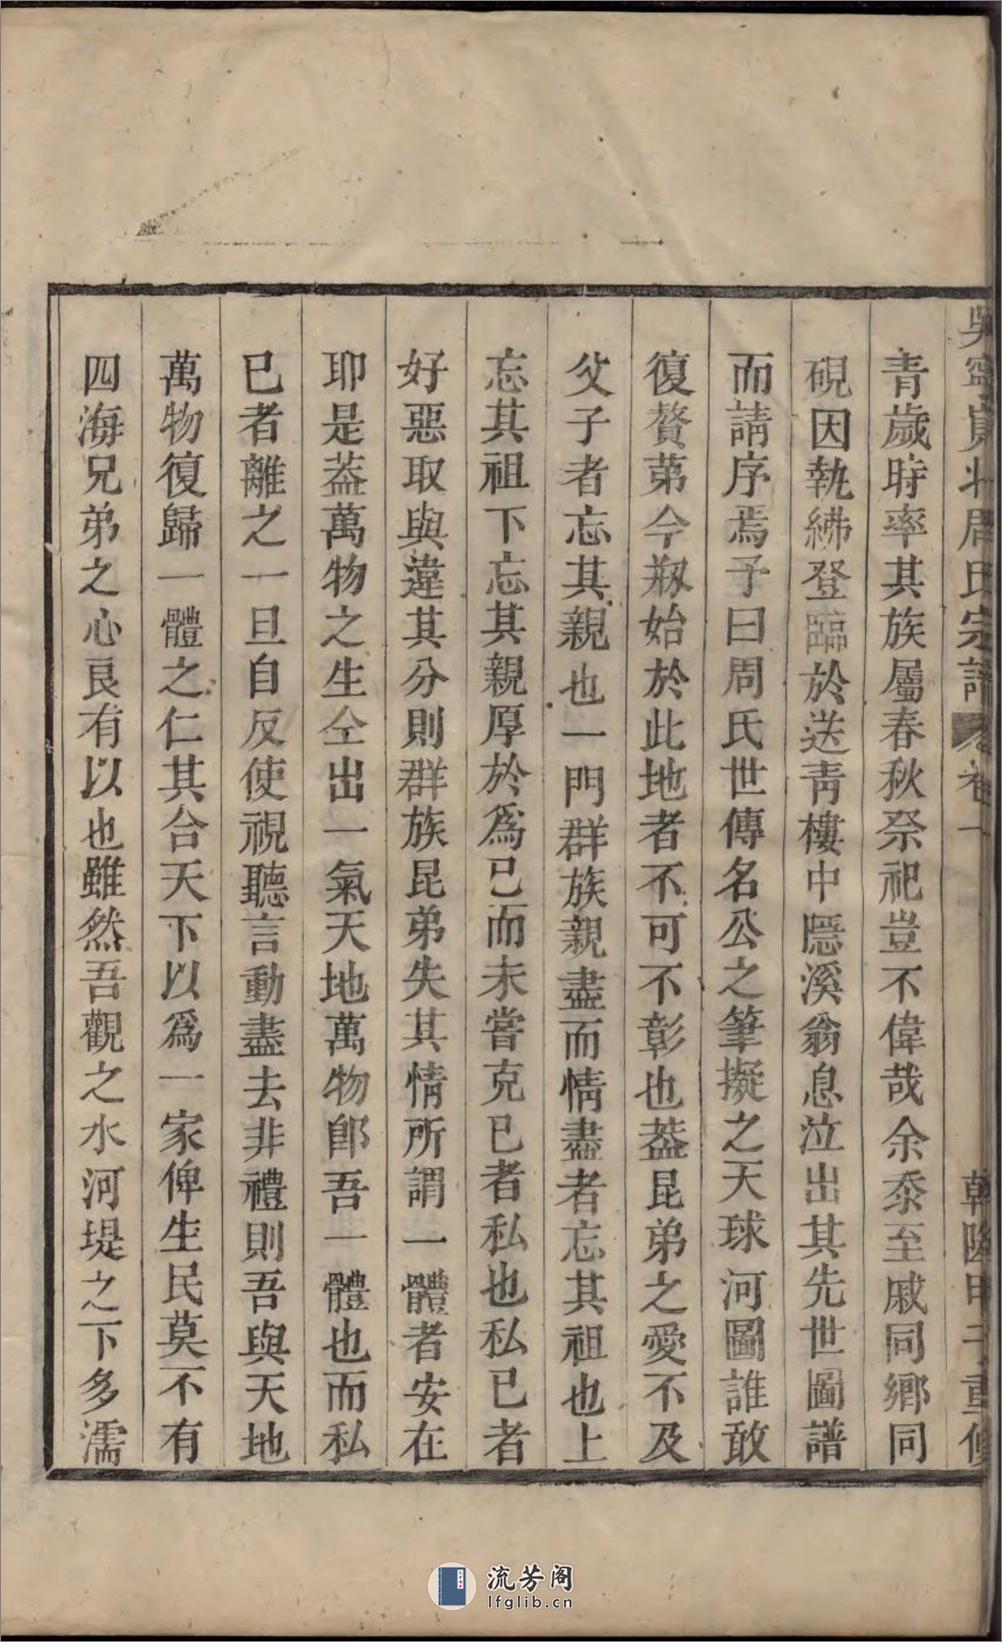 吳寧 氏宗譜 卷一 乾隆甲子重修
青歲時率其族屬春秋祭祀豈不偉哉余忝至戚同鄉同
硯因執紼登臨於送青樓中隱溪翁息泣出其先世圖譜
而請序焉予曰周氏世傳名公之筆擬之天球河圖誰敢
復贅第今剏始於此地者不可不彰也葢昆弟之愛不及
父子者忘其親也一門群族親盡而情盡者忘其祖也上
忘其祖下忘其親厚於爲己而未嘗克己者私也私己者
好惡取與違其分則群族昆弟失其情所謂一體者安在
耶是葢萬物之生仝出一氣天地萬物卽吾一體也而私
己者離之一旦自反使視聽言動盡去非禮則吾與天地
萬物復歸一體之仁其合天下以爲一家俾生民莫不有
四海兄弟之心良有以也雖然吾觀之水河堤之下多濡
流芳阁
lfglib.cn